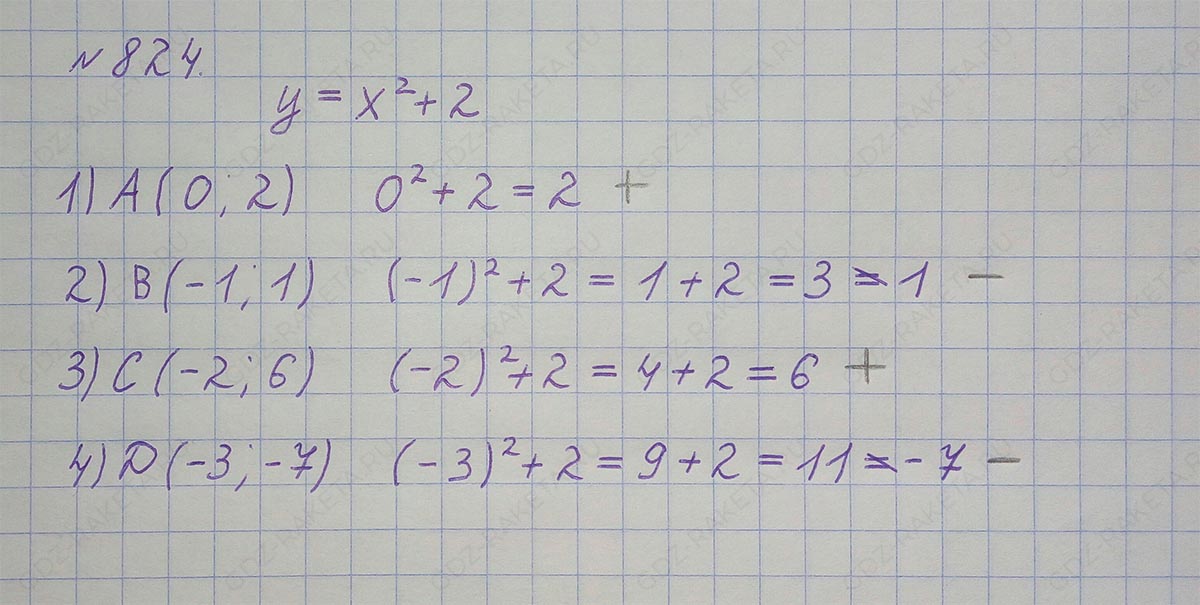 № 824.
y = x² + 2
1) A(0; 2) 0² + 2 = 2 +
2) B(-1; 1) (-1)² + 2 = 1 + 2 = 3 ≠ 1 −
3) C(-2; 6) (-2)² + 2 = 4 + 2 = 6 +
4) D(-3; -7) (-3)² + 2 = 9 + 2 = 11 ≠ -7 −
GDZ-RAKETA.RU